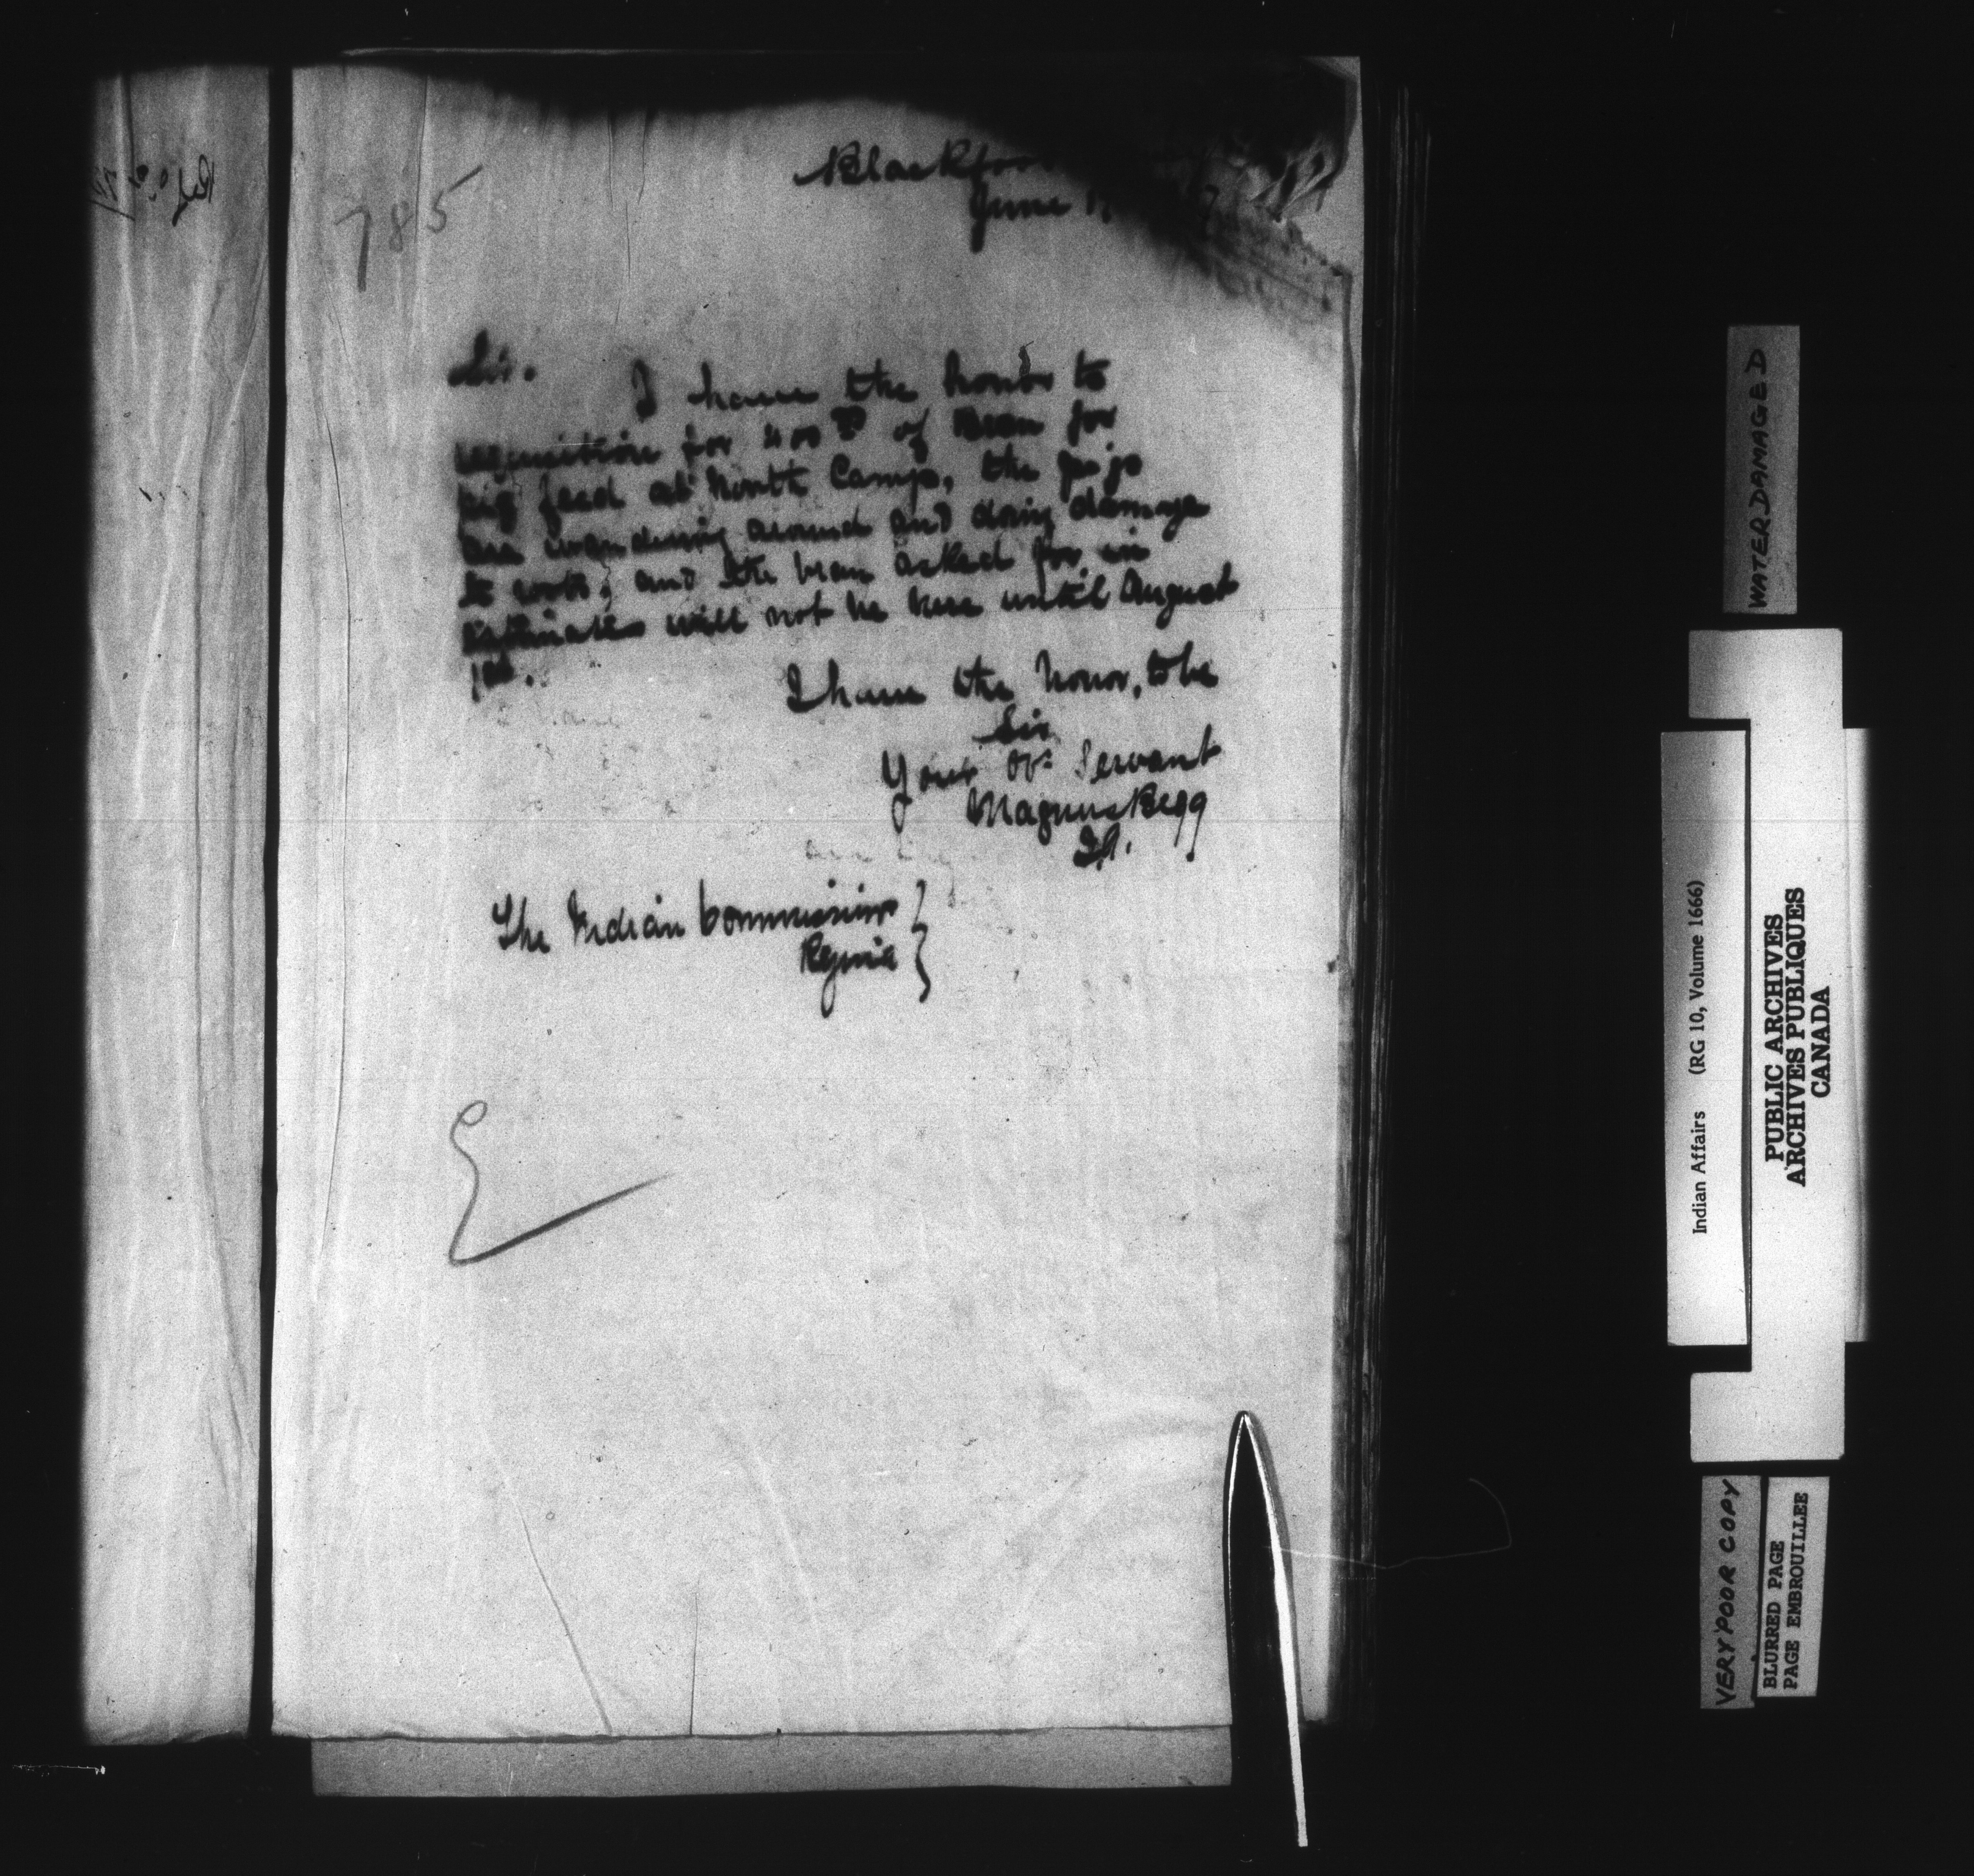 785
Blackfoot
June
Sir.
I have the honor to
requisition for 400 lbs of Bran for
pig feed at North Camp, the pigs
are wandering around and doing damage
to roots, and the bran asked for in
Estimates will not be here until August
1st.
I have the honor, to be
Sir
Your Obt Servant
Magnus Begg
I.A.
The Indian Commissioner
Regina
WATERDAMAGED
Indian Affairs (RG 10, Volume 1666)
PUBLIC ARCHIVES
ARCHIVES PUBLIQUES
CANADA
VERY POOR COPY
BLURRED PAGE
PAGE EMBROUILLEE